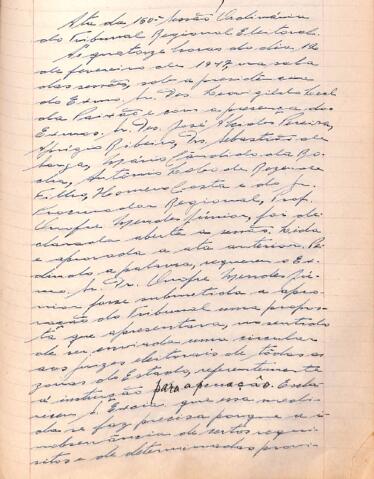 Ata da 160ª Sessão Ordinária
do Tribunal Regional Eleitoral.
Às quatorze horas do dia 12
de fevereiro de 1947, na sala
das sessões, sob a presidencia
do Exmo. Sr. Des. Leovigildo Leal
da Paixão e com a presença dos
Exmos. Srs. Des. José Alcides Pereira,
Aprigio Ribeiro, Drs. Sebastião de
Souza, Mário Candido da Ro-
cha, Antonio Pedro de Rezende
Filho, Homero Costa e do Sr.
Procurador Regional, Prof.
Onofre Mendes Júnior, foi de-
clarada aberta a sessão. Lida
e aprovada a ata anterior. Pe-
dindo a palavra, requereu o Ex-
mo. Sr. Dr. Onofre Mendes Jú-
nior fosse submetida a apro-
vação do Tribunal uma propos-
ta que apresentava, no sentido
de ser enviada uma circular
aos juizes eleitorais de tôdas as
zonas do Estado, referentemente
a instrução para apuração. Escla-
receu S. Excia. que essa medi-
da se faz precisa porque a i-
nobservância de certos requi-
sitos e de determinadas provi-